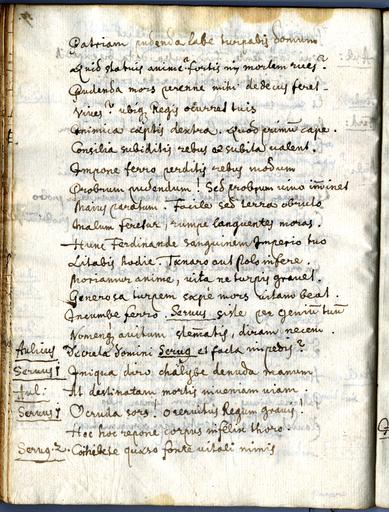 Patriam pudenda labe turpabis domum
Quid statuis anime? fortis in mortem rues?
Pudenda mors perenne mihi dedecus ferat
Vives? ubiq Regis occurret tuis
Inimica cæptis dextra. Quod primū cape.
Consilia subiditis rebus ac subita valent.
Impone ferro perditis rebus modum
Probrum pudendum! Sed probrum vivo imminet
Maius paratum. Facile sed terra obruto
malum feretur, rumpe languentes moras.
Hunc Ferdinande sanguinem Imperio tuo
Litabis hodie. Tænaro aut Polo infere.
moriamur anime, vita ne turpis gravet.
Generosa turpem sæpe mors vitam beat.
Incumbe ferro. Servus siste per geniū tuū
Nomenq avitum stemmatis, diram necem.
Aulicus Decreta domini Servo et facta impedis?
Servus 1 Iniqua duro chalybe denuda manum
Jul: At destinatam mortis inveniam viam.
Servus 1 O cruda sors! o servitus Regum gravis!
Hoc hoc repone corpus infelix thoro.
Servo 2. Cohibete quæso fonte vitali nimis